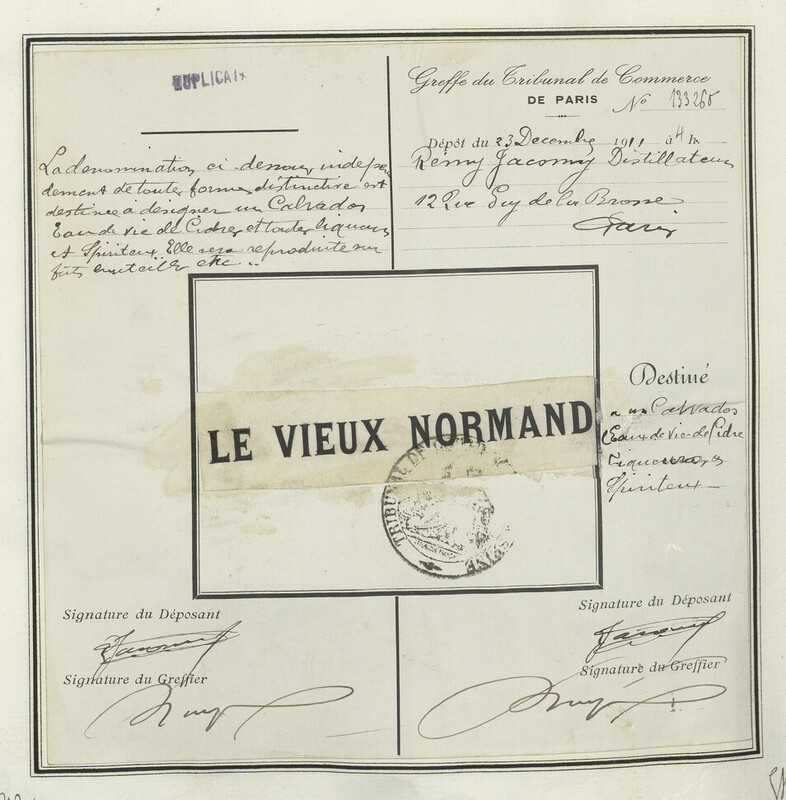 DUPLICATA
La denomination ci dessous indépen
dament de toute forme distinctive est
destinée à désigner un Calvados
Eau de vie de Cidre, et toutes liqueurs
et Spiritueux. Elle sera reproduite sur
fûts bouteilles etc..
Greffe du Tribunal de Commerce
DE PARIS No
Dépôt du 23 Decembre 1911 à 4 h
Rémy Jacomy Distillateur
12 Rue Guy de la Brosse
Paris
LE VIEUX NORMAND
TRIBUNAL DE
SEINE
Destiné
a un Calvados
Eaux de Vie de Cidre
Liqueurs
Spiritueux
Signature du Déposant
Signature du Greffier
Signature du Déposant
Signature du Greffier